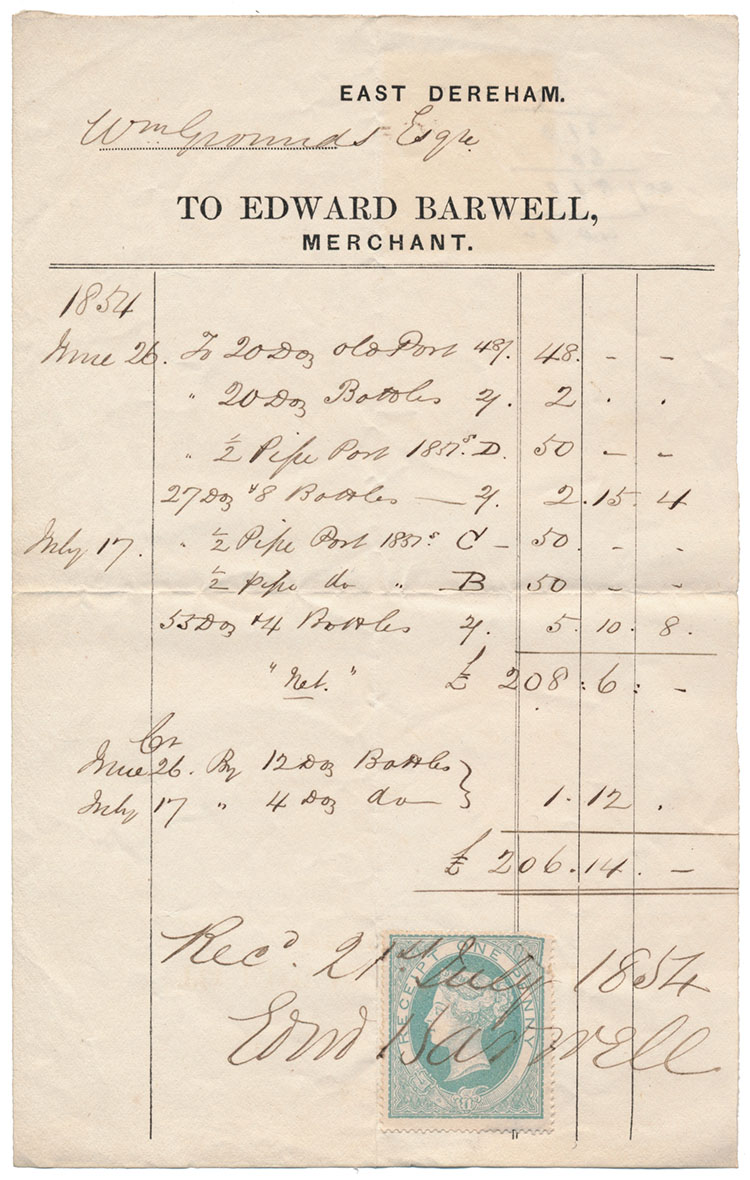 EAST DEREHAM.
Wm Grounds Esqre
TO EDWARD BARWELL,
MERCHANT.
1854
June 26. To 20 Doz old Port 48/. 48. - -
" 20 Doz Bottles 2/. 2 . .
" ½ Pipe Port 1851s. D. 50 - -
27 Doz & 8 Bottles — 2/. 2. 15. 4
July 17. " ½ Pipe Port 1851s C - 50. - -
½ Pipe do " B 50 - -
55 Doz & 4 Bottles 2/. 5. 10. 8.
"Net." £ 208 : 6 : -
Cr
June 26. By 12 Doz Bottles }
July 17 " 4 Doz do — } 1. 12 .
£ 206. 14. -
Recd. 21st July 1854
Edwd Barwell
RECEIPT ONE PENNY